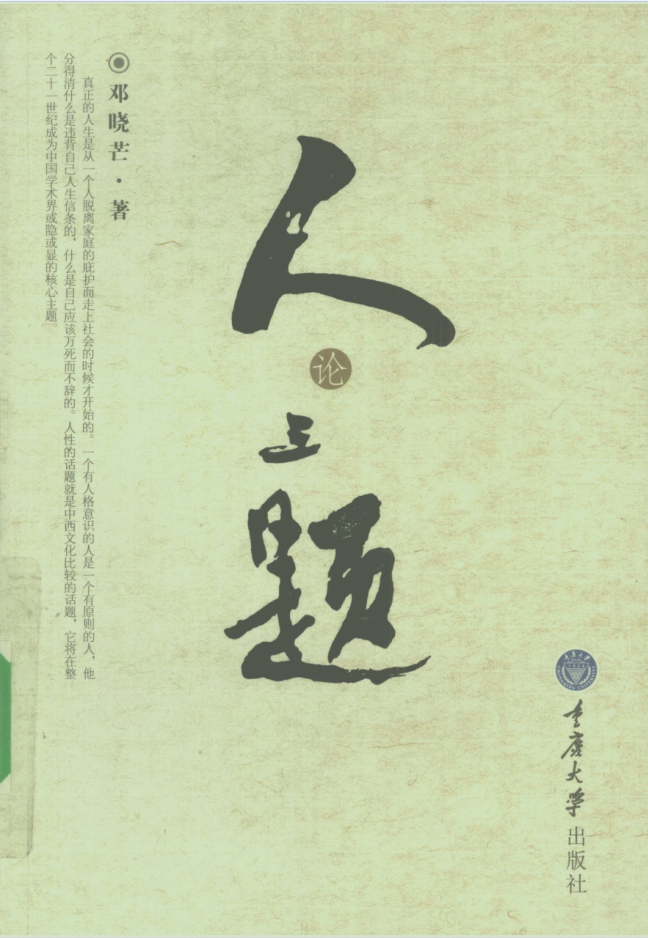 人
论
三
题
邓晓芒·著
真正的人生是从一个人脱离家庭的庇护而走上社会的时候才开始的。一个有人格意识的人是一个有原则的人，他
分得清什么是违背自己人生信条的，什么是自己应该万死而不辞的。人性的话题就是中西文化比较的话题，它将在整
个二十一世纪成为中国学术界或隐或显的核心主题。
重庆大学
出版社